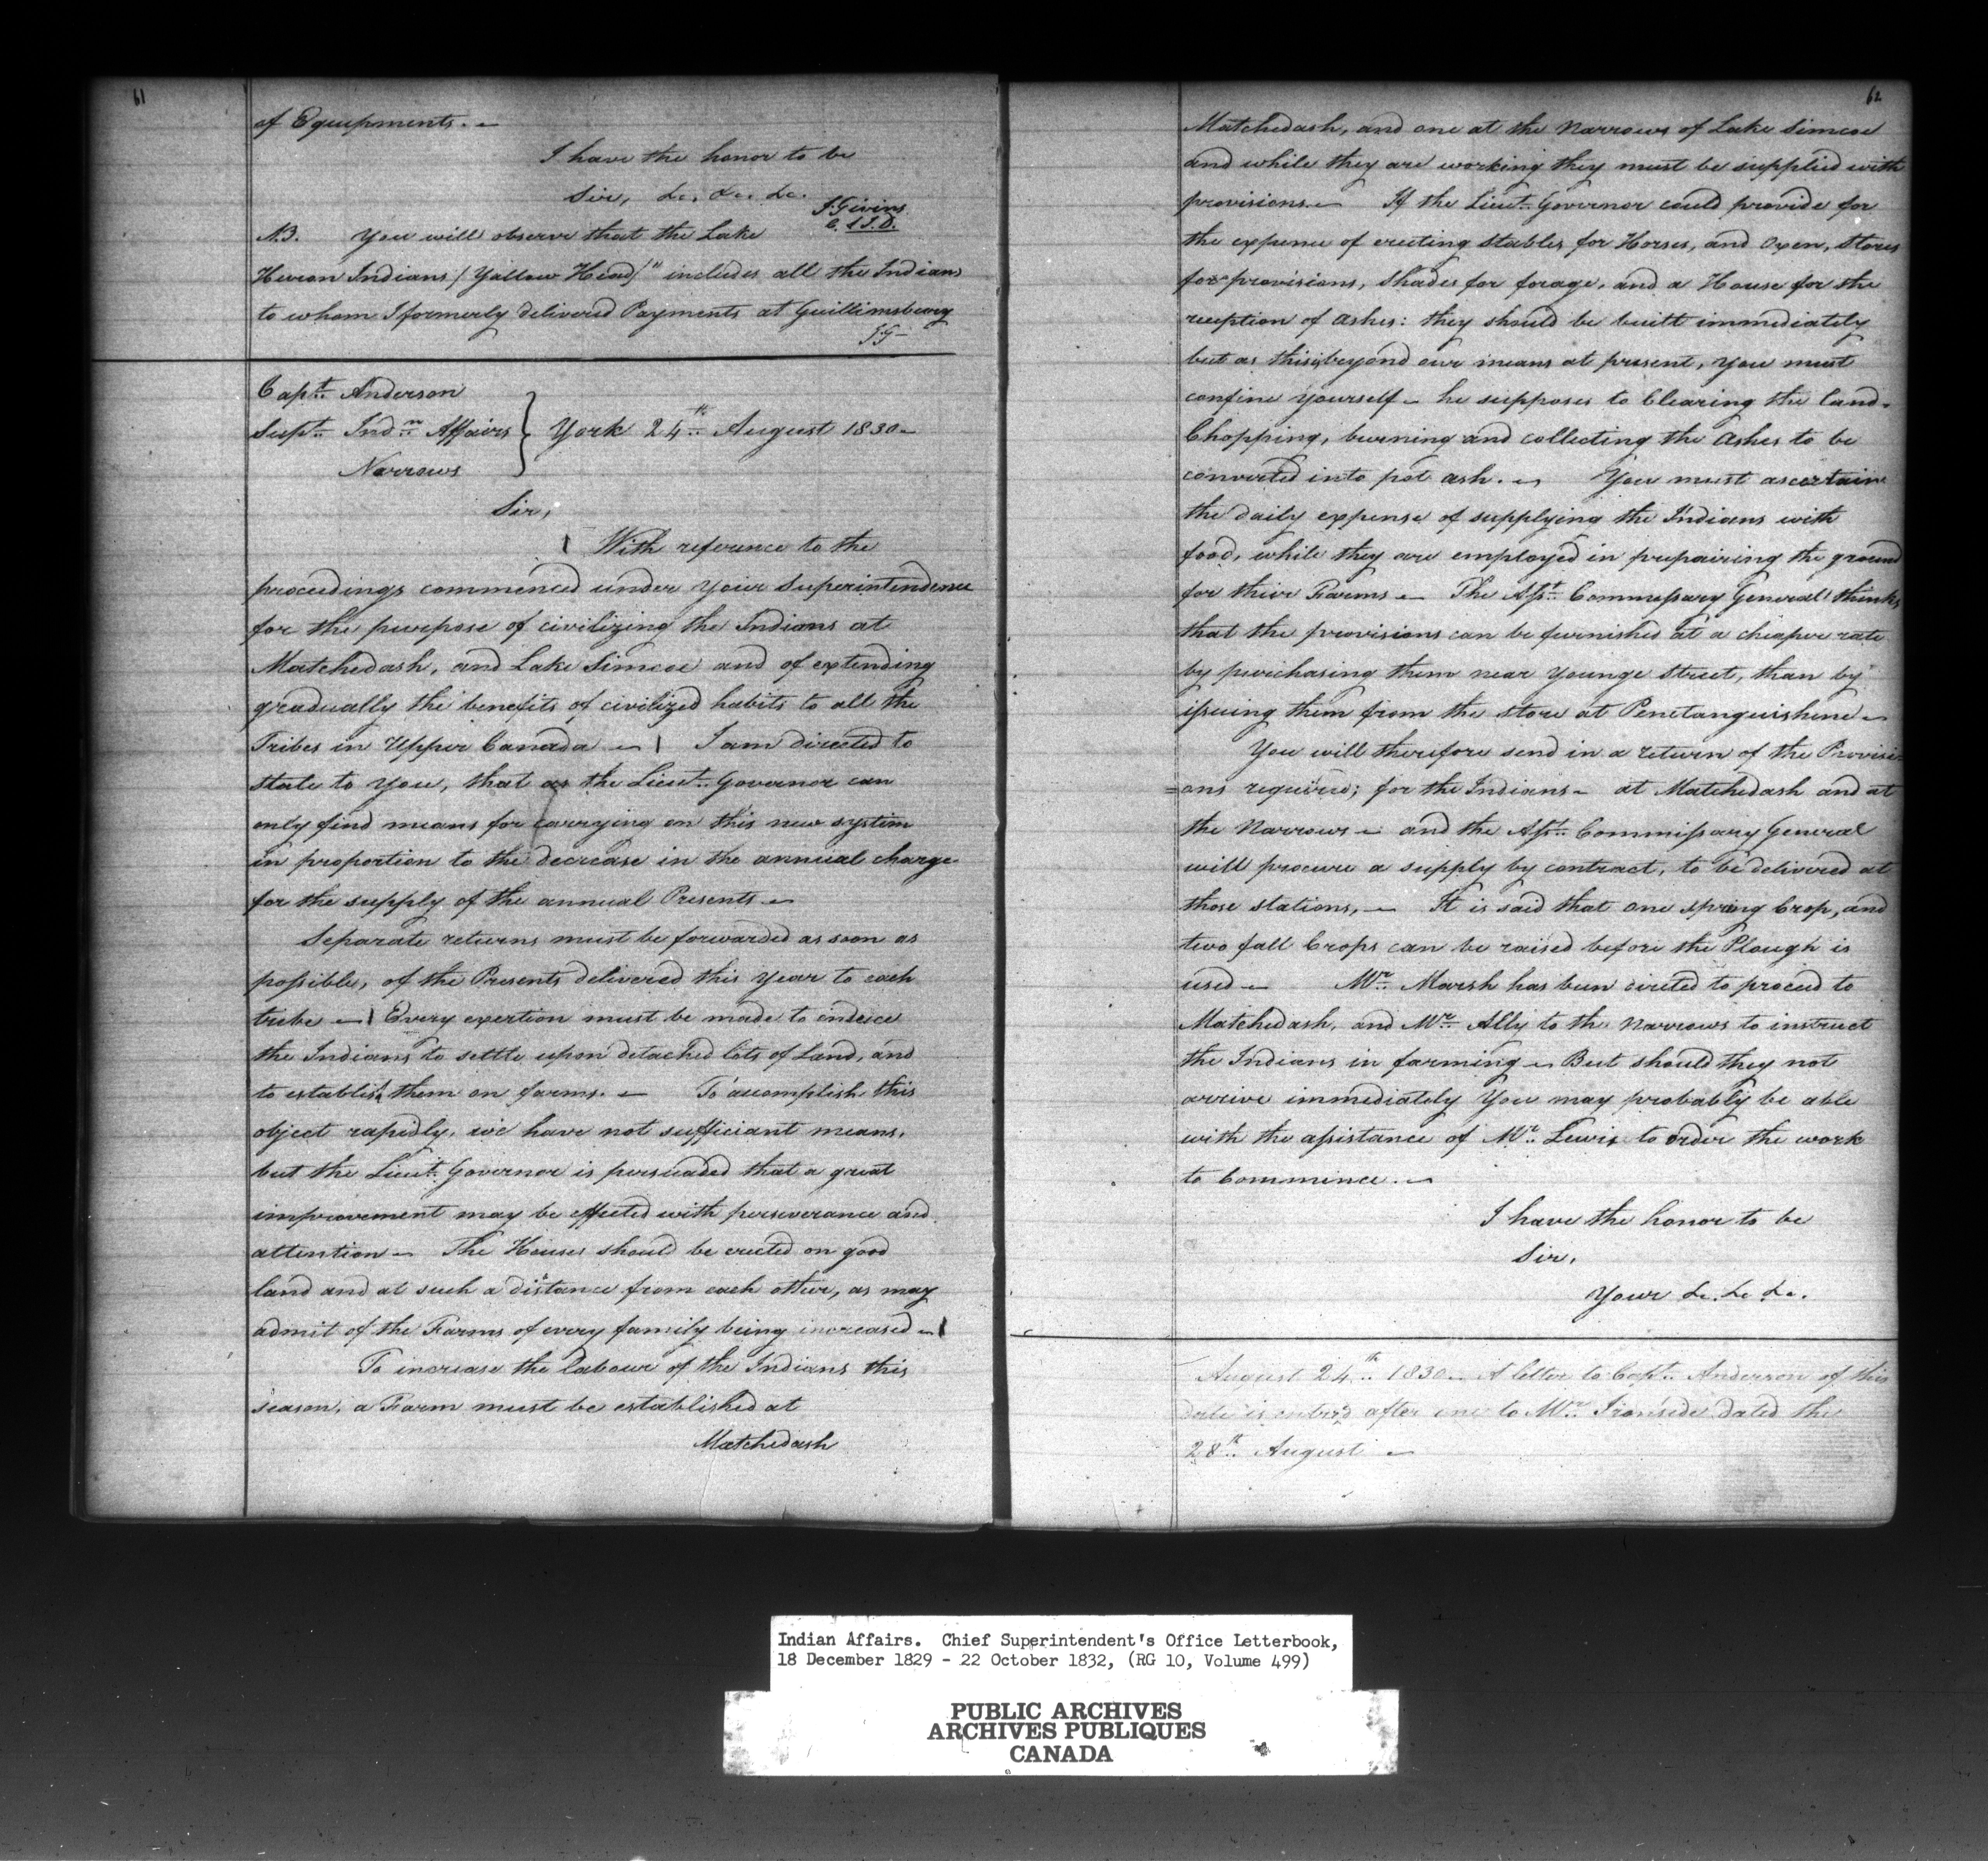 61
of Equipments. –
I have the honor to be
Sir, &c. &c. &c.
J Givins
C. S I. D.
N.B. You will observe that the Lake
Heuron Indians (Yallow Head)" includes all the Indians
to whom I formerly delivered Payments at Guillimsbeury
JG –
Capt. Anderson
Supt. Indn. Affairs } York 24th. August 1830 –
Narrows
Sir,
With referance to the
proceedings commenced under your Superintendence
for the purpose of civilizing the Indians at
Matchedash, and Lake Simcoe and of extending
gradually the benefits of civilized habits to all the
Tribes in Upper Canada – I am directed to
state to you, that as the Lieut. Governor can
only find means for carrying on this new system
in proportion to the decrease in the annual charge
for the supply of the annual Presents –
Separate returns must be forwarded as soon as
possible, of the Presents delivered this year to each
tribe – Every exertion must be made to induce
the Indians to settle upon detached lots of Land, and
to establish them on farms. – To accomplish this
object rapidly, we have not sufficiant means,
but the Lieut. Governor is persuaded that a great
improvement may be effected with perseverance and
attention – The Houses should be erected on good
land and at such a distance from each other, as may
admit of the Farms of every family being increased –
To increase the labour of the Indians this
season, a Farm must be established at
Matchedash
62
Matchedash, and one at the Narrows of Lake Simcoe
and while they are working they must be supplied with
provisions. – If the Lieut. Governor could provide for
the expense of erecting stables for Horses, and Oxen, Stores
for provisions, Shades for forage, and a House for the
reception of Ashes: they should be built immediately
but as this is beyond our means at present, you must
confine yourself – he supposes to Clearing the land –
Chopping, burning and collecting the Ashes to be
converted into pot ash. – You must ascertain
the daily expense of supplying the Indians with
food, while they are employed in prepairing the ground
for thier Farms – The Asst. Commissary General thinks
that the provisions can be furnished at a cheaper rate
by purchasing them near Younge Street, than by
issuing them from the store at Penetanguishene –
You will therefore send in a return of the Provisi
=ons required; for the Indians – at Matchedash and at
the Narrows – and the Asst. Commissary General
will procure a supply by contract, to be delivered at
those stations, – It is said that one spring Crop, and
two fall Crops can be raised before the Plough is
used – Mr. Marsh has been directed to proceed to
Matchedash, and Mr. Ally to the Narrows to instruct
the Indians in farming – But should they not
arrive immediately You may probably be able
with the assistance of Mr. Lewis to order the work
to Commence. –
I have the honor to be
Sir,
Your &c. &c &c.
August 24th. 1830 – A letter to Capt. Anderson of this
date is entered after one to Mr. Ironside dated the
28th. August –
Indian Affairs. Chief Superintendent's Office Letterbook,
18 December 1829 - 22 October 1832, (RG 10, Volume 499)
PUBLIC ARCHIVES
ARCHIVES PUBLIQUES
CANADA